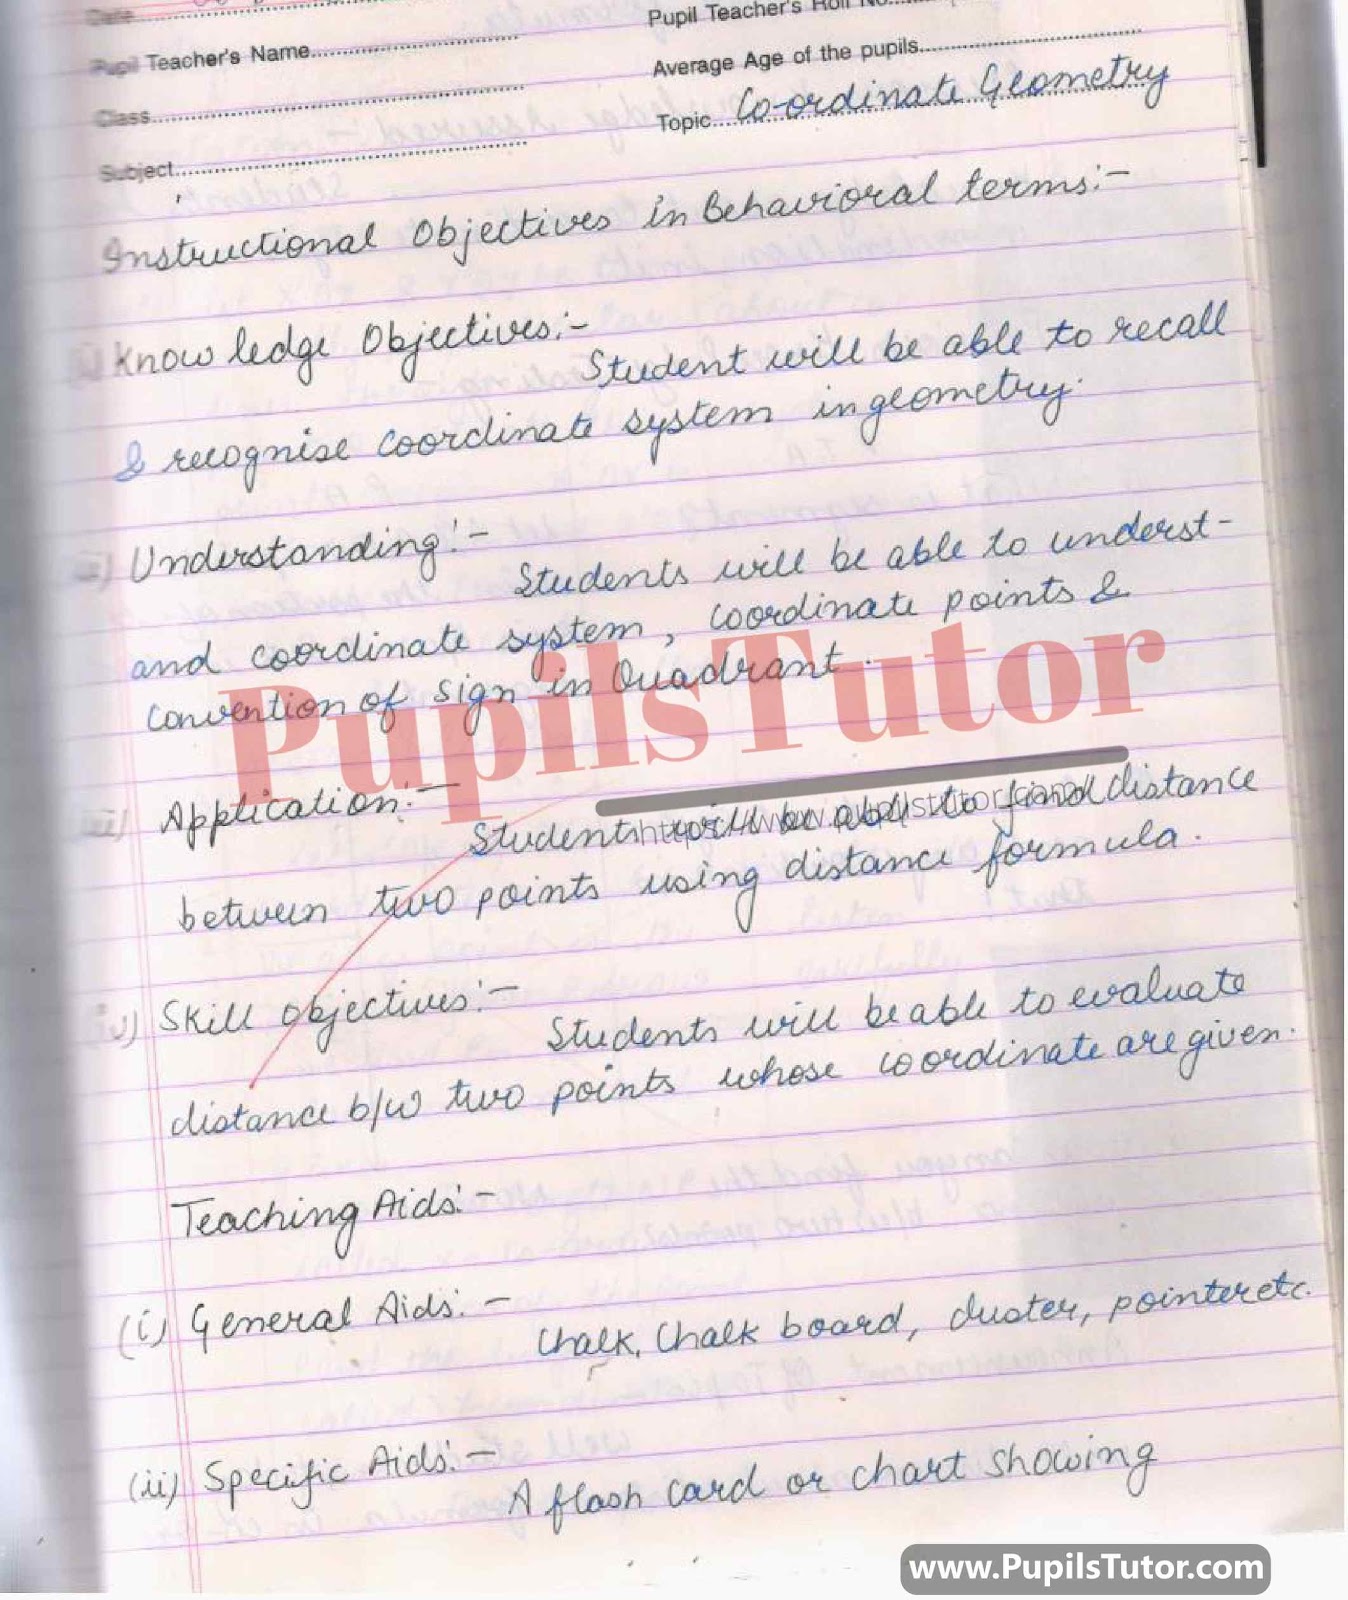 Date
Pupil Teacher's Roll No.
Pupil Teacher's Name
Average Age of the pupils
Class
Topic Co-ordinate Geometry
Subject
Instructional Objectives in Behavioral terms:-
i) Knowledge Objectives:-
Student will be able to recall
& recognise coordinate system in geometry.
ii) Understanding:-
Students will be able to underst-
and coordinate system, coordinate points &
convention of sign in Quadrant.
PupilsTutor
iii) Application:-
Students will be able to find distance
between two points using distance formula.
iv) Skill objectives:-
Students will be able to evaluate
distance b/w two points whose coordinate are given.
Teaching Aids:-
(i) General Aids:-
Chalk, Chalk board, duster, pointer etc.
(ii) Specific Aids:-
A flash card or chart showing
www.PupilsTutor.com